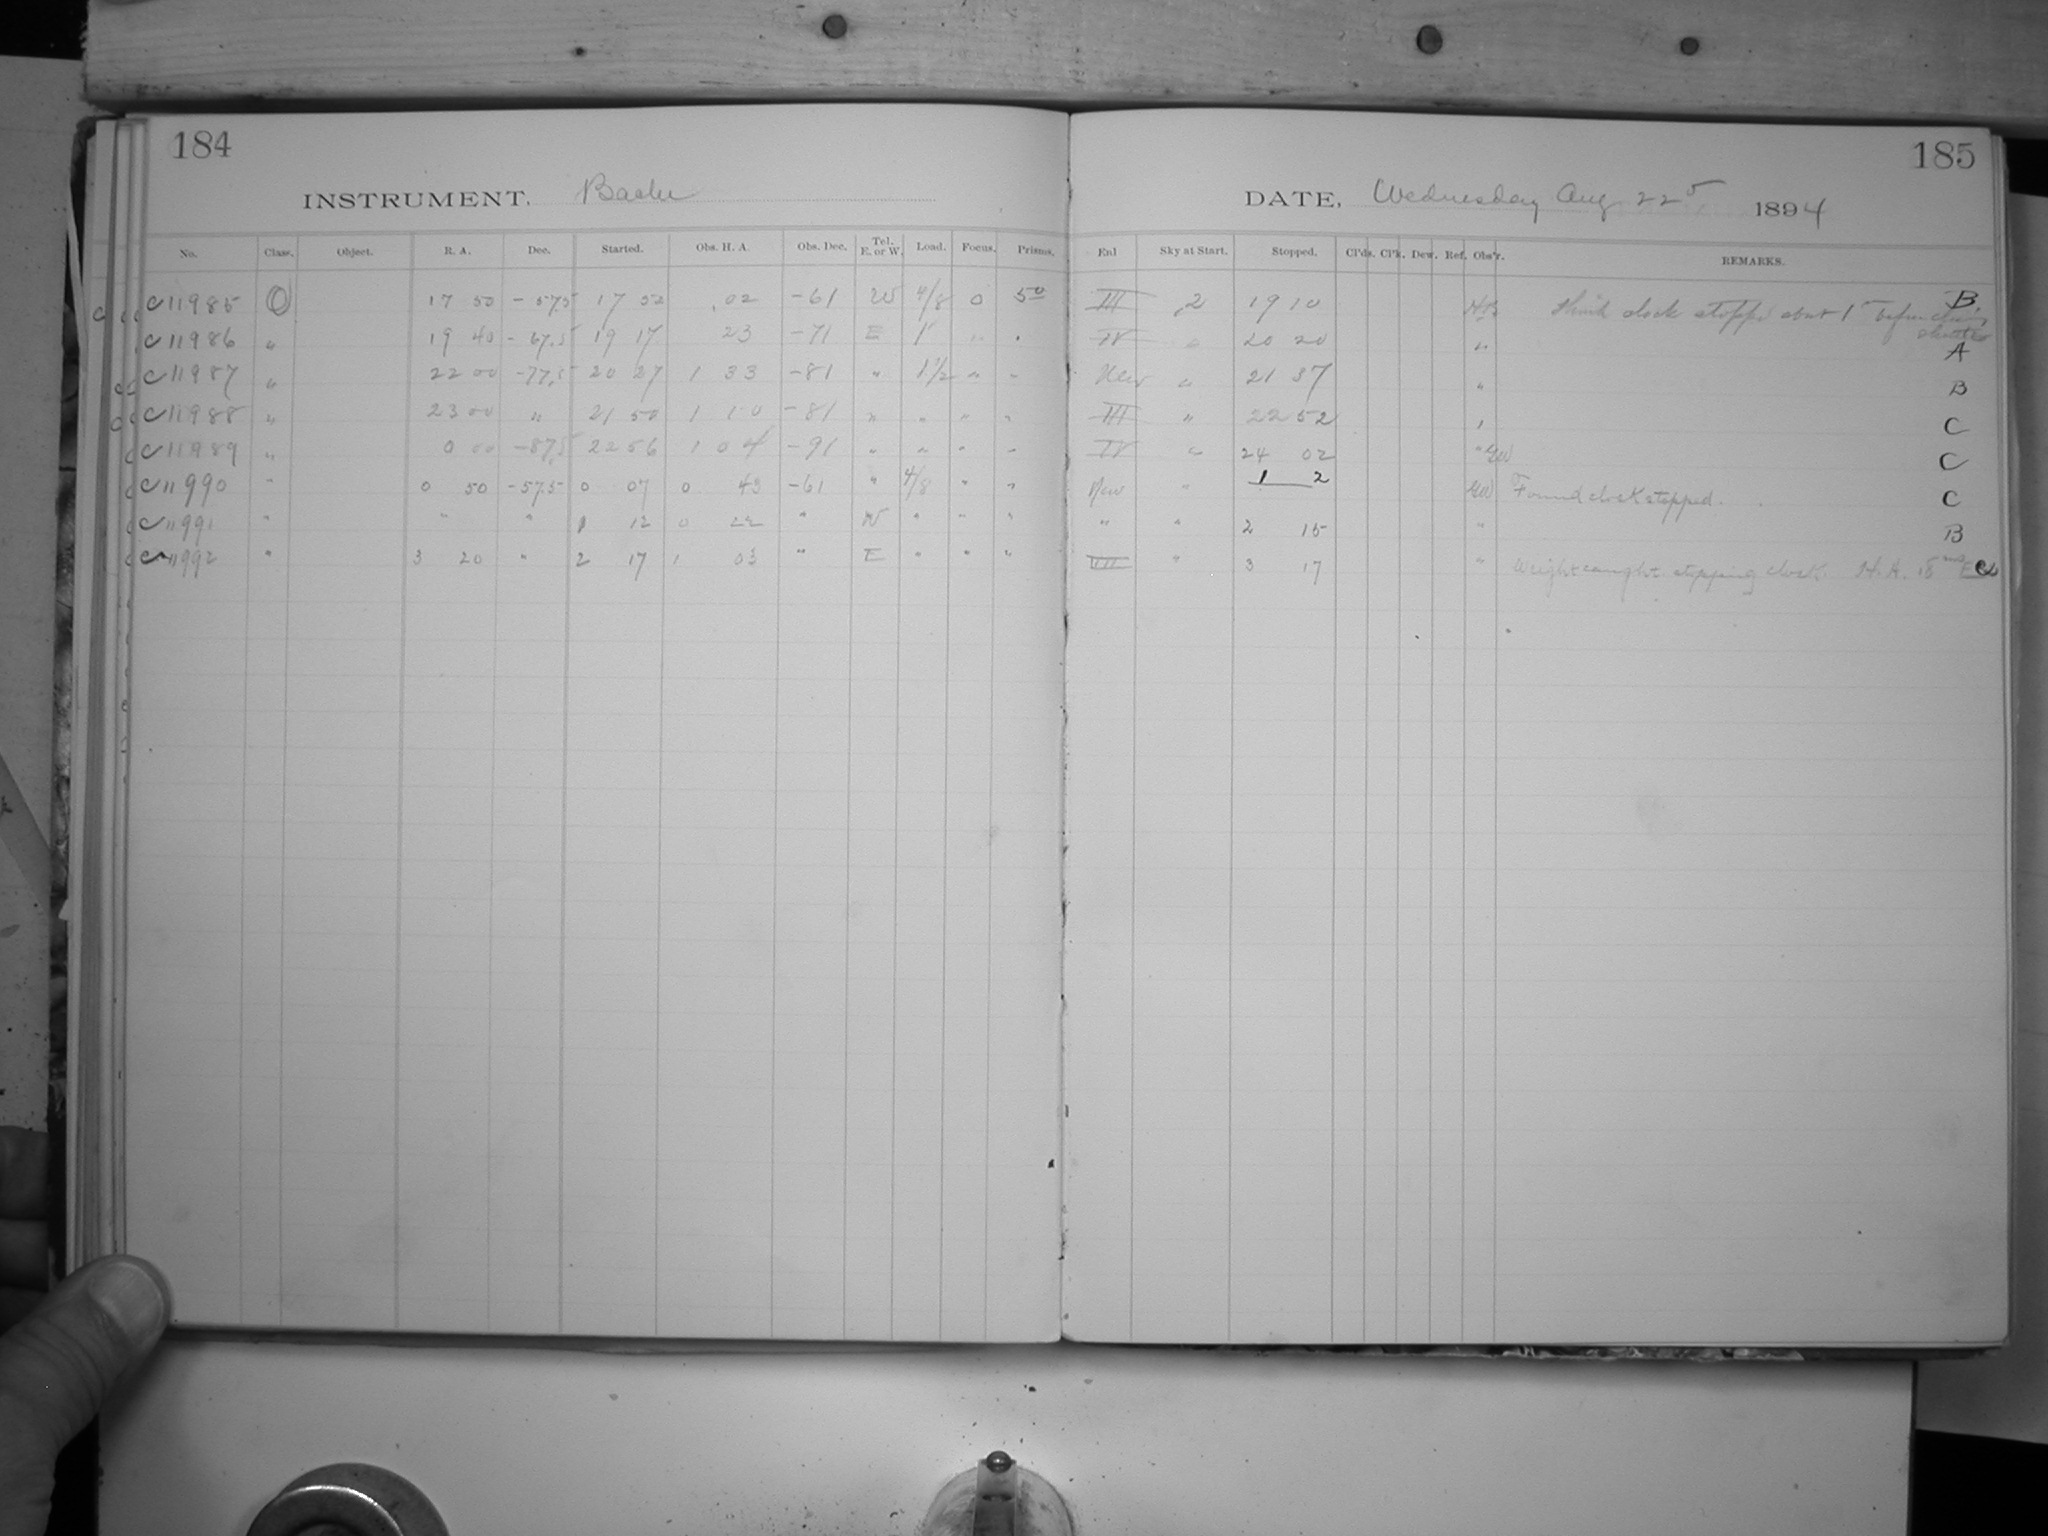 184
INSTRUMENT. Bache
No. Class. Object. R. A. Dec. Started. Obs. H. A. Obs. Dec. Tel. E. or W. Load. Focus. Prisms.
C 11985 O 17 50 -57.5 17 52 .02 -61 W 4/8 0 50
C 11986 " 19 40 -67.5 19 17 23 -71 E 1 " "
C 11987 " 22 00 -77.5 20 27 1 33 -81 " 1 1/2 " "
C 11988 " 23 00 " 21 50 1 10 -81 " " " "
C 11989 " 0 00 -87.5 22 56 1 04 -91 " " " "
C 11990 " 0 50 -57.5 0 07 0 43 -61 " 4/8 " "
C 11991 " " " 1 12 0 22 " W " " "
C 11992 " 3 20 " 2 17 1 03 " E " " "
185
DATE, Wednesday Aug 22 1894
Enl Sky at Start. Stopped. Cl'ds. Cl'k. Dew. Ref. Obs'r. REMARKS.
III 2 19 10 Think clock stopped about 1 before closing shutter B
IV " 20 20 " A
New " 21 37 " B
III " 22 52 " C
IV " 24 02 " GW C
New " 1 2 GW Found clock stopped. C
" " 2 15 " B
III " 3 17 " Weight caught stopping clock H. A. 18 E C